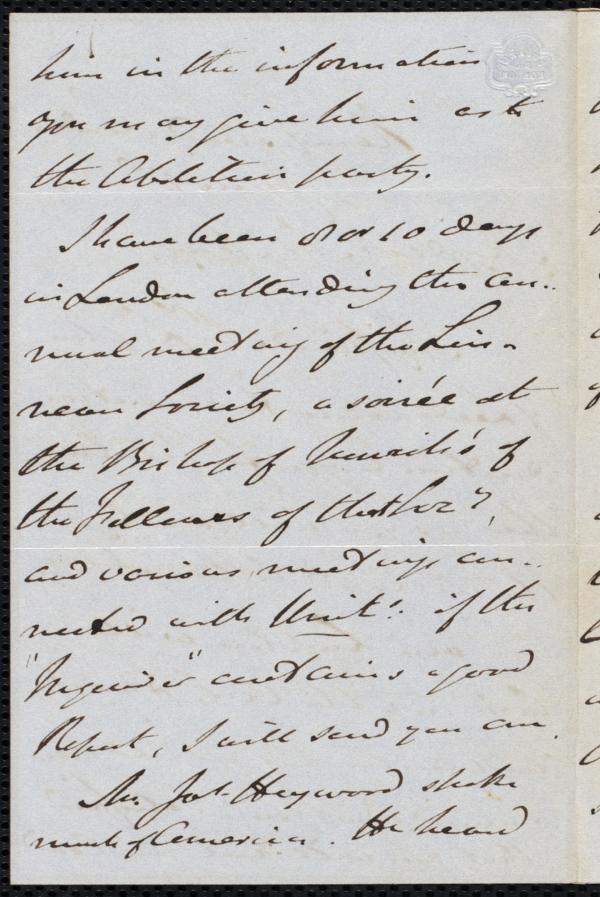 him in the information
you may give him as to
the Abolition party.
I have been 8 or 10 days
in London attending the an..
nual meeting of the Lin-
nean Society, a soirée at
the Bishop of Norwich's of
the Fellows of that Soc.y,
and various meetings con..
nected with Unit.s if the
"Inquirer" contains a good
Report, I will send you one.
Mr. Jas. Heywood spoke
much of America. He heard